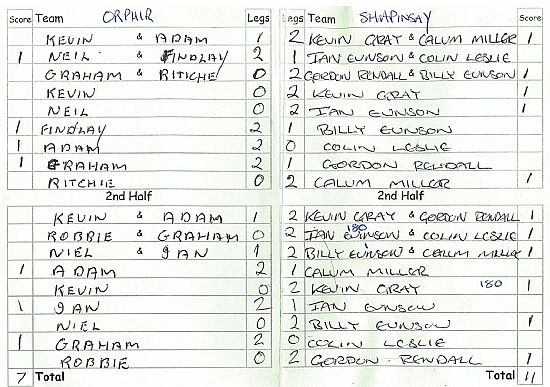 Score Team ORPHIR Legs Legs Team SHAPINSAY Score
KEVIN & ADAM 1 2 KEVIN GRAY & CALUM MILLER 1
1 NEIL & FINDLAY 2 1 IAN EUNSON & COLIN LESLIE
GRAHAM & RITCHIE 0 2 GORDON RENDALL & BILLY EUNSON 1
KEVIN 0 2 KEVIN GRAY 1
NEIL 0 2 IAN EUNSON 1
1 FINDLAY 2 1 BILLY EUNSON
1 ADAM 2 0 COLIN LESLIE
1 GRAHAM 2 1 GORDON RENDALL
RITCHIE 0 2 CALUM MILLER 1
2nd Half 2nd Half
KEVIN & ADAM 1 2 KEVIN GRAY & GORDON RENDALL 1
ROBBIE & GRAHAM 0 2 IAN EUNSON 180 & COLIN LESLIE 1
NIEL & IAN 1 2 BILLY EUNSON & CALUM MILLER 1
1 ADAM 2 1 CALUM MILLER
KEVIN 0 2 KEVIN GRAY 180 1
1 IAN 2 1 IAN EUNSON
NIEL 0 2 BILLY EUNSON 1
1 GRAHAM 2 0 COLIN LESLIE
ROBBIE 0 2 GORDON RENDALL 1
7 Total Total 11